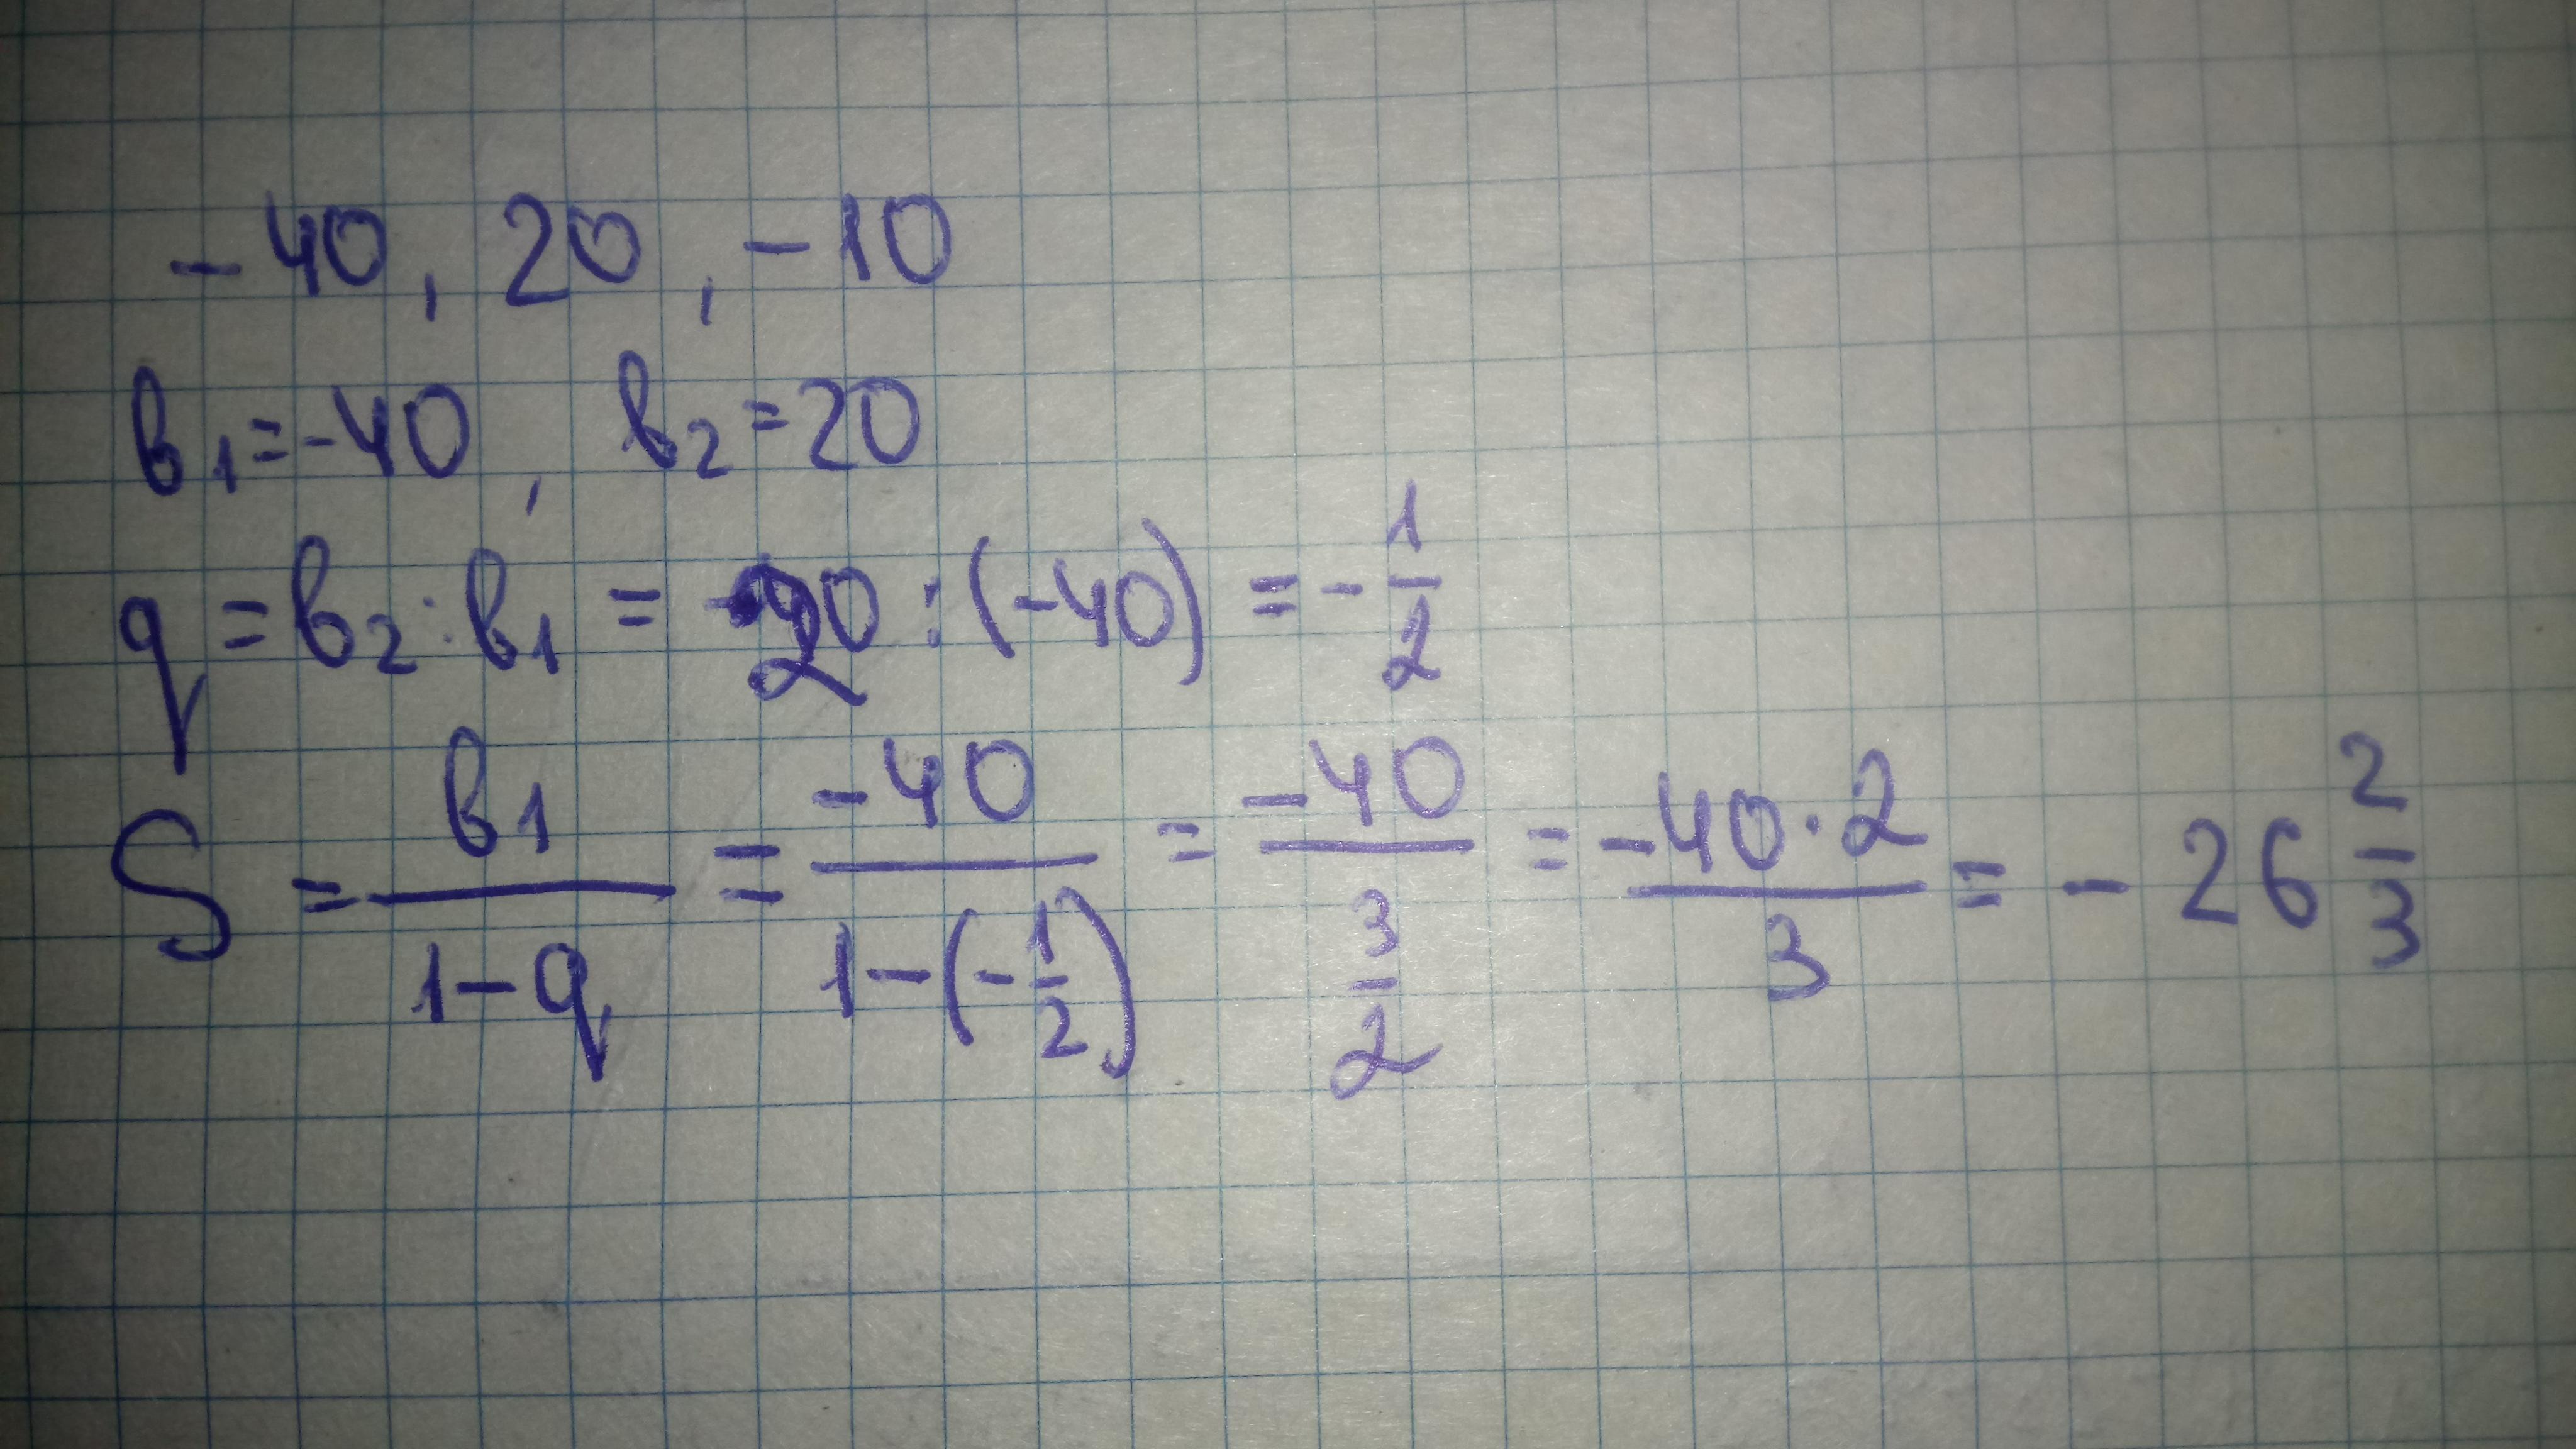 -40, 20, -10
в₁=-40, в₂=20
q=в₂:в₁=20:(-40)=-1/2
S=в₁/(1-q)=-40/(1-(-1/2))=-40/(3/2)=-40·2/3=-26 2/3